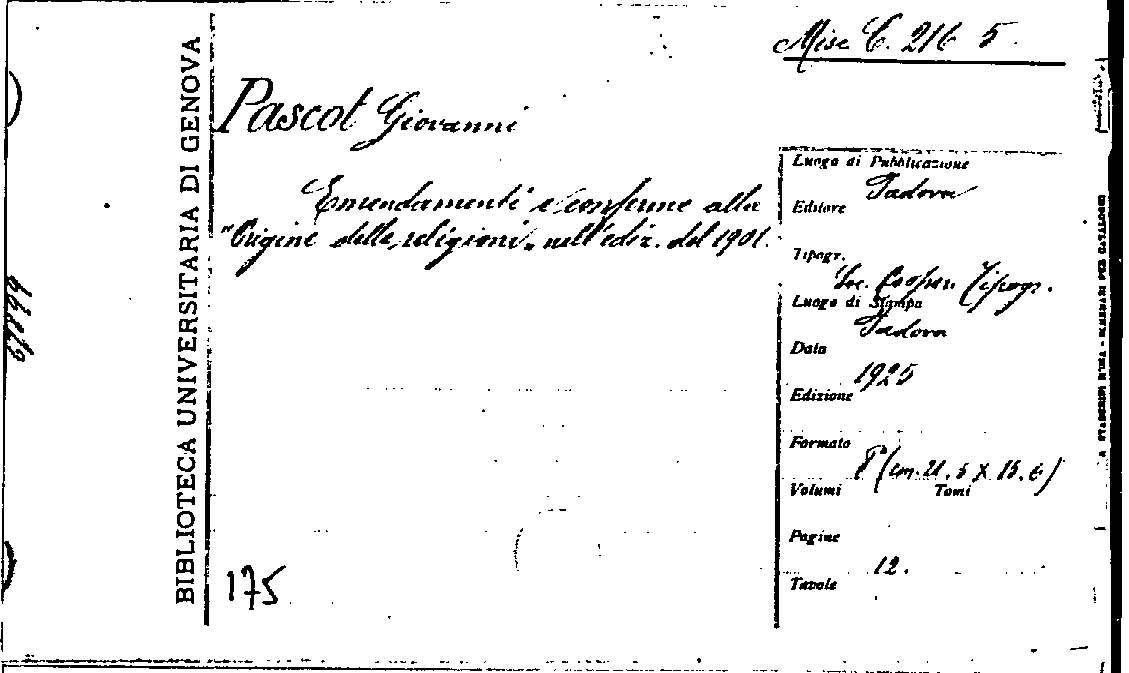 Misc C. 216 5.
BIBLIOTECA UNIVERSITARIA DI GENOVA
Pascot Giovanni
Emendamenti e conferme alla
"Origine delle religioni" nell'ediz. del 1901.
Luogo di Pubblicazione
Padova
Editore
Tipogr.
Soc. Cooper. Tipogr.
Luogo di Stampa
Padova
Data
1925
Edizione
Formato
8° (cm. 21.5 X 15.6)
Volumi Tomi
Pagine
12.
Tavole
175